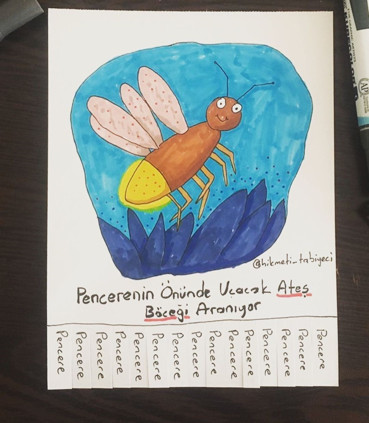 @hikmeti_tabiyeci
Pencerenin Önünde Uçacak Ateş
Böceği Aranıyor
Pencere
Pencere
Pencere
Pencere
Pencere
Pencere
Pencere
Pencere
Pencere
Pencere
Pencere
Pencere